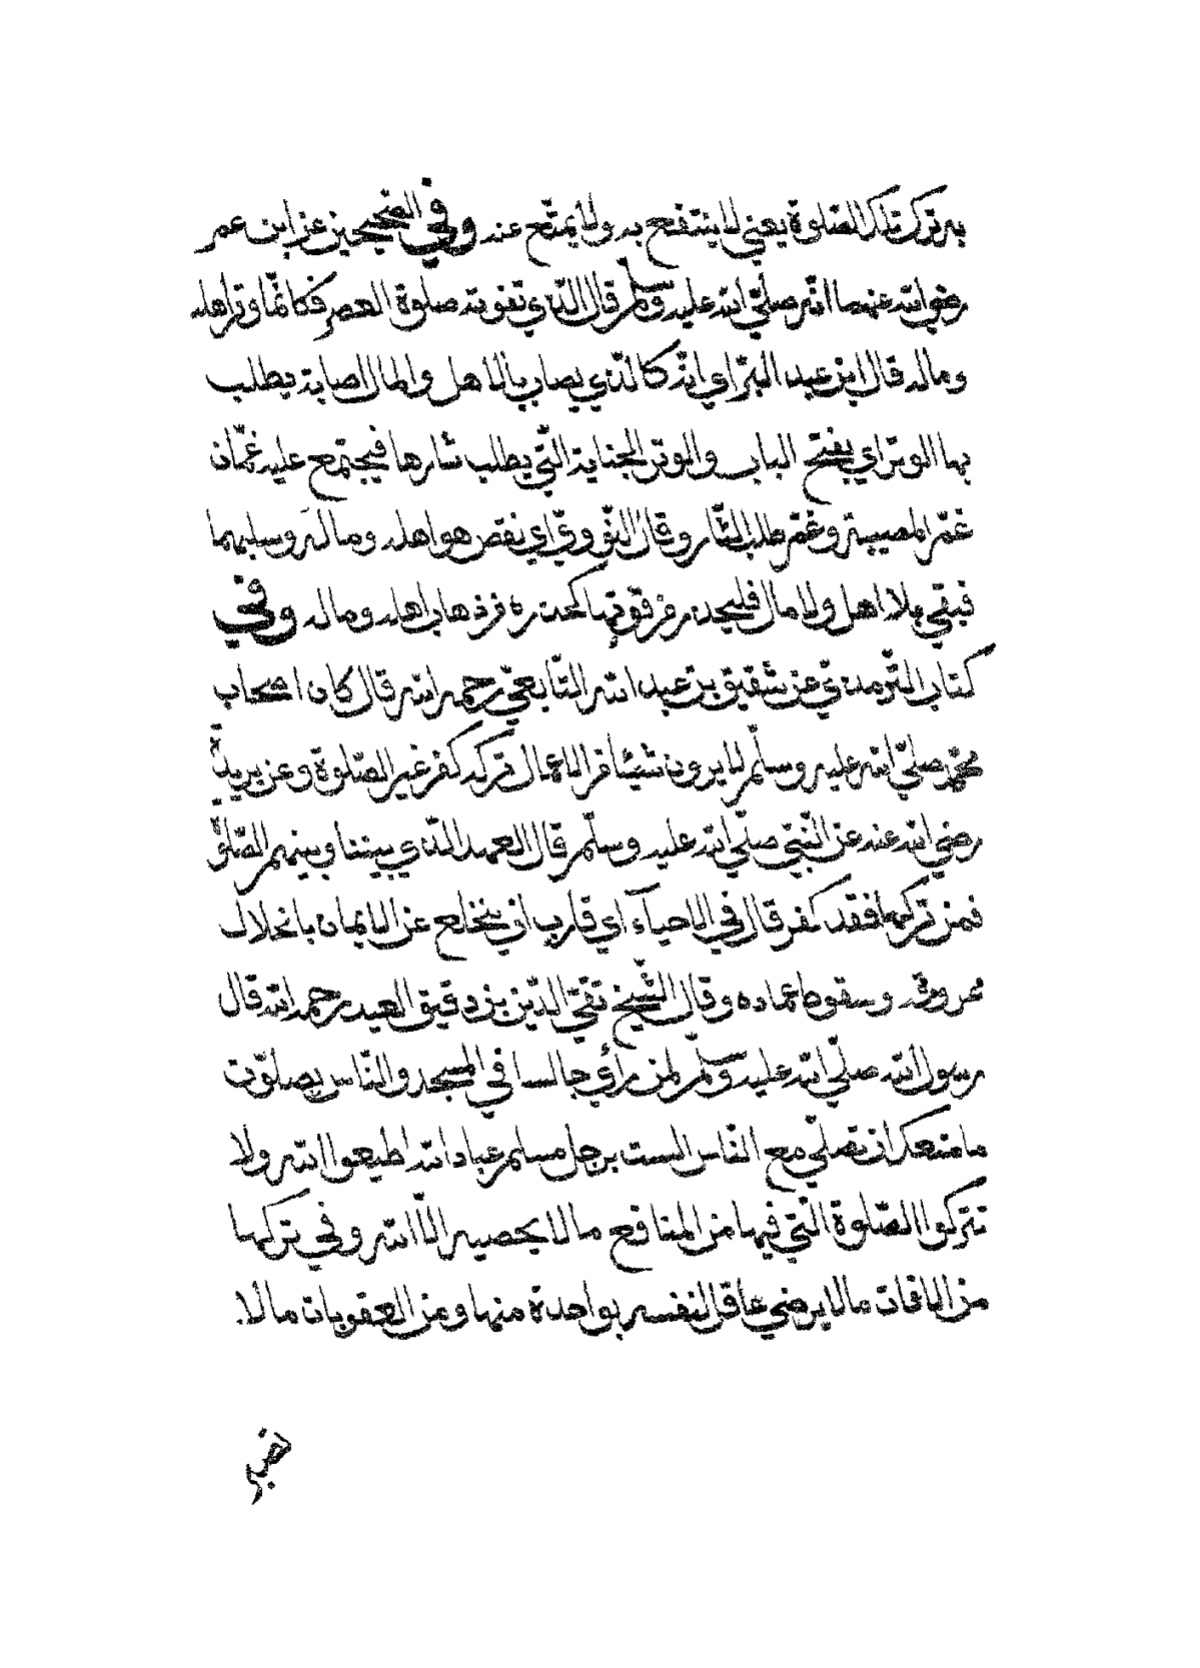 بترك تلك الصلوة يعني لا ينتفع به ولا يمتّع عنه وفي الصحيحين عن ابن عمر
رضي الله عنهما انّه صلّي الله عليه وسلّم قال الذي تفوته صلوة العصر فكانّما وتر اهله
وماله قال ابن عبد البرّ اي انّه كالذي يصاب بالاهل والمال اصابة يطلب
بها الوتر اي يفتح الباب والوتر الجناية الّتي يطلب ثارها فيجتمع عليه غمّان
غمّ المصيبة وغمّ طلب الثّار وقال النّووي اي نقص هو اهله وماله وسلبهما
فبقي بلا اهل ولا مال فليحذر من فوتها كحذره من ذهاب اهله وماله وفي
كتاب التّرمذي عن شقيق بن عبد الله التّابعيّ رحمه الله قال كان اصحاب
محمّد صلّي الله عليه وسلّم لا يرون شيئا من الاعمال تركه كفر غير الصّلوة وعن بريدة
رضي الله عنه عن النّبيّ صلّي الله عليه وسلّم قال العهد الّذي بيننا وبينهم الصّلوة
فمن تركها فقد كفر قال في الاحياء اي قارب ان ينخلع عن الايمان بانحلال
عروته وسقوط عماده وقال الشّيخ تقيّ الدّين بن دقيق العيد رحمه الله قال
رسول الله صلّي الله عليه وسلّم لمن رأي جالسا في المسجد والنّاس يصلّون
ما منعك ان تصلّي مع النّاس الست برجل مسلم عباد الله اطيعوا الله ولا
تتركوا الصّلوة الّتي فيها من المنافع ما لا يحصيه الّا الله وفي تركها
من الافات ما لا يرضي عاقل لنفسه بواحدة منها ومن العقوبات ما لا.